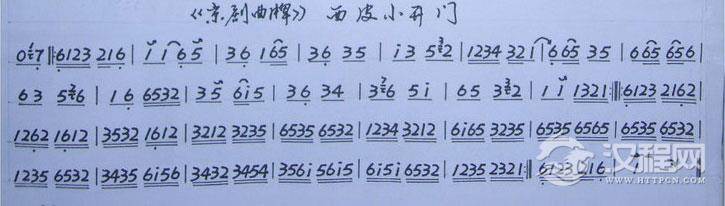 《京剧曲牌》 西皮小开门
0 6/4 7 ‖: 6123 216 | 1 1 6 5 | 36 165 | 36 35 | i3 5 3/2 2 | 1234 321 | 665 35 | 665 656 |
63 5 3/4 6 | 16 6532 | 35 6i5 | 36 34 | 3 2/7 6 5i | 65 3 3/2 2 | 1i 1321 :‖ 6123 2162 |
1262 1612 | 3532 1612 | 3212 3235 | 6535 6532 | 1234 3212 | 6i65 3235 | 6535 6565 | 6535 6532 |
1235 6532 | 3435 6i56 | 3432 3454 | 356i 56i5 | 6i5i 6532 | 1235 2321 ‖ 6123 216 |
汉程网
WWW.HTTPCN.COM